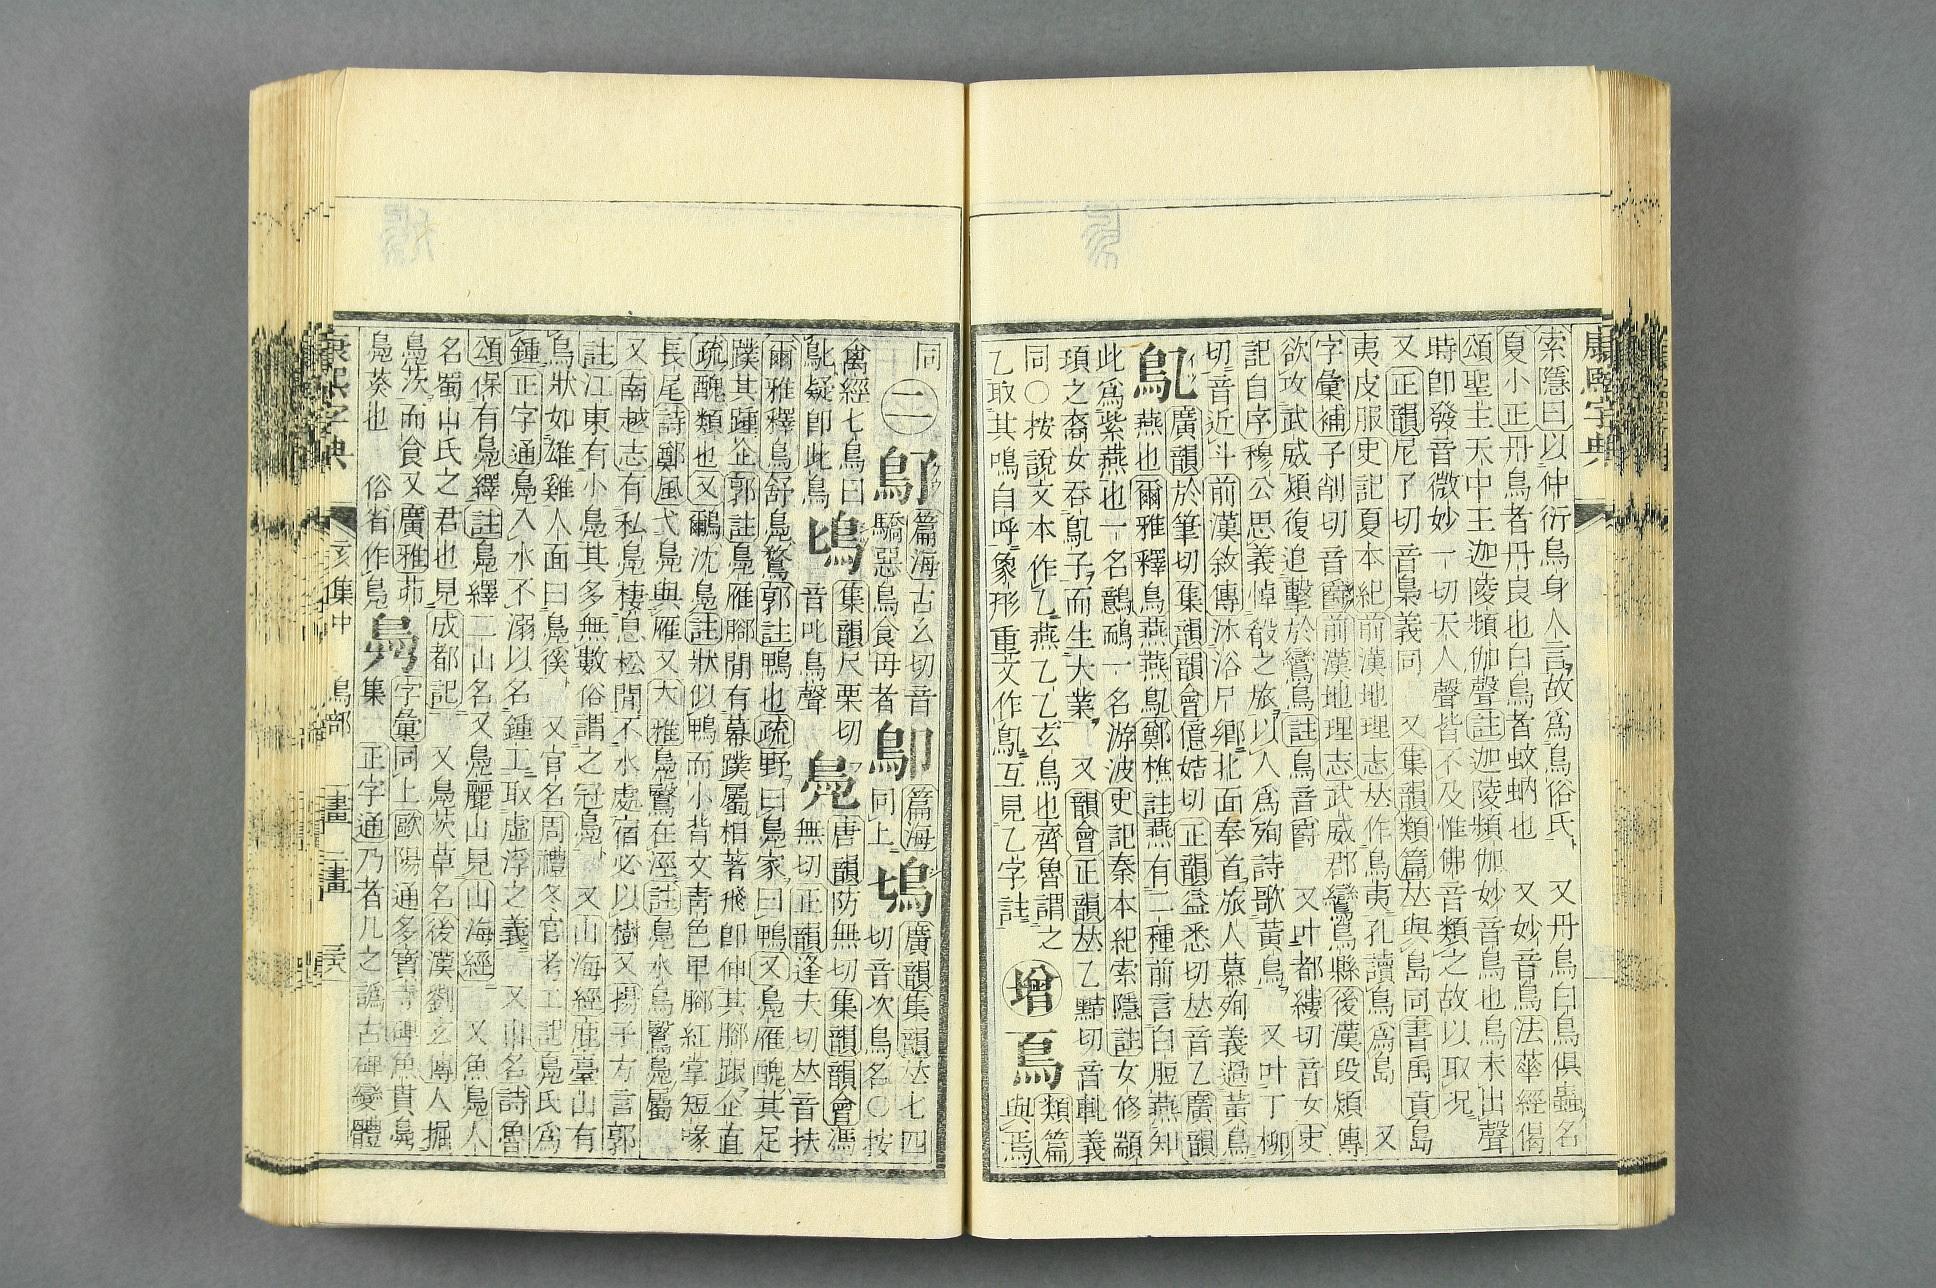 康熙字典
索隱曰以仲衍鳥身人言故爲鳥俗氏 又丹鳥白鳥俱蟲名
夏小正丹鳥者丹良也白鳥者蚊蚋也 又妙音鳥法華經偈
頌聖主天中王迦陵頻伽聲註迦陵頻伽妙音鳥也鳥未出聲
時卽發音微妙一切天人聲皆不及惟佛音類之故以取况
又正韻尼了切音梟義同 又集韻類篇𠀤與島同書禹貢島
夷皮服史記夏本紀前漢地理志𠀤作鳥夷孔讀鳥爲島 又
字彙補子削切音爵前漢地理志武威郡鸞鳥縣後漢段熲傳
欲攻武威熲復追擊於鸞鳥註鳥音爵 又叶都縷切音女史
記自序穆公思義悼殽之旅以人爲殉詩歌黃鳥 又叶丁柳
切音近斗前漢敘傳沐浴尸鄕北面奉首旅人慕殉義過黃鳥
鳦廣韻於筆切集韻韻會億姞切正韻益悉切𠀤音乙廣韻
燕也爾雅釋鳥燕燕鳦鄭樵註燕有二種前言白脰燕知
此爲紫燕也一名鷾鴯一名游波史記秦本紀索隱註女修顓
頊之裔女吞鳦子而生大業 又韻會正韻𠀤乙黠切音軋義
同○按說文本作乙燕乙乙玄鳥也齊魯謂之
乙取其鳴自呼象形重文作鳦互見乙字註 增 鳥類篇
與焉
同 二 篇海古幺切音
驕惡鳥食母者 篇海
同上 廣韻集韻𠀤七四
切音次鳥名○按
禽經七鳥曰
鳦疑卽此鳥 集韻尺栗切
音叱鳥聲 鳧唐韻防無切集韻韻會馮
無切正韻逢夫切𠀤音扶
爾雅釋鳥舒鳧鶩郭註鴨也疏野曰鳧家曰鴨又鳧雁醜其足
蹼其踵企郭註鳧雁腳閒有幕蹼屬相著飛卽伸其腳跟企直
疏醜類也又鸍沈鳧註狀似鴨而小背文靑色卑腳紅掌短喙
長尾詩鄭風弋鳧與雁又大雅鳧鷖在涇註鳧水鳥鷖鳧屬
又南越志有私鳧棲息松閒不水處宿必以樹又揚子方言郭
註江東有小鳧其多無數俗謂之冠鳧 又山海經鹿臺山有
鳥狀如雄雞人面曰鳧徯 又官名周禮冬官考工記鳧氏爲
鍾正字通鳧入水不溺以名鍾工取虛浮之義 又山名詩魯
頌保有鳧繹註鳧繹二山名又鳧麗山見山海經 又魚鳧人
名蜀山氏之君也見成都記 又鳧茨草名後漢劉玄傳人掘
鳧茨而食又廣雅茆 字彙同上歐陽通多寶寺碑魚貫鳧
鳧葵也 俗省作鳬 集 正字通乃者几之譌古碑變體
康熙字典
亥集中 鳥部 一畫 二畫